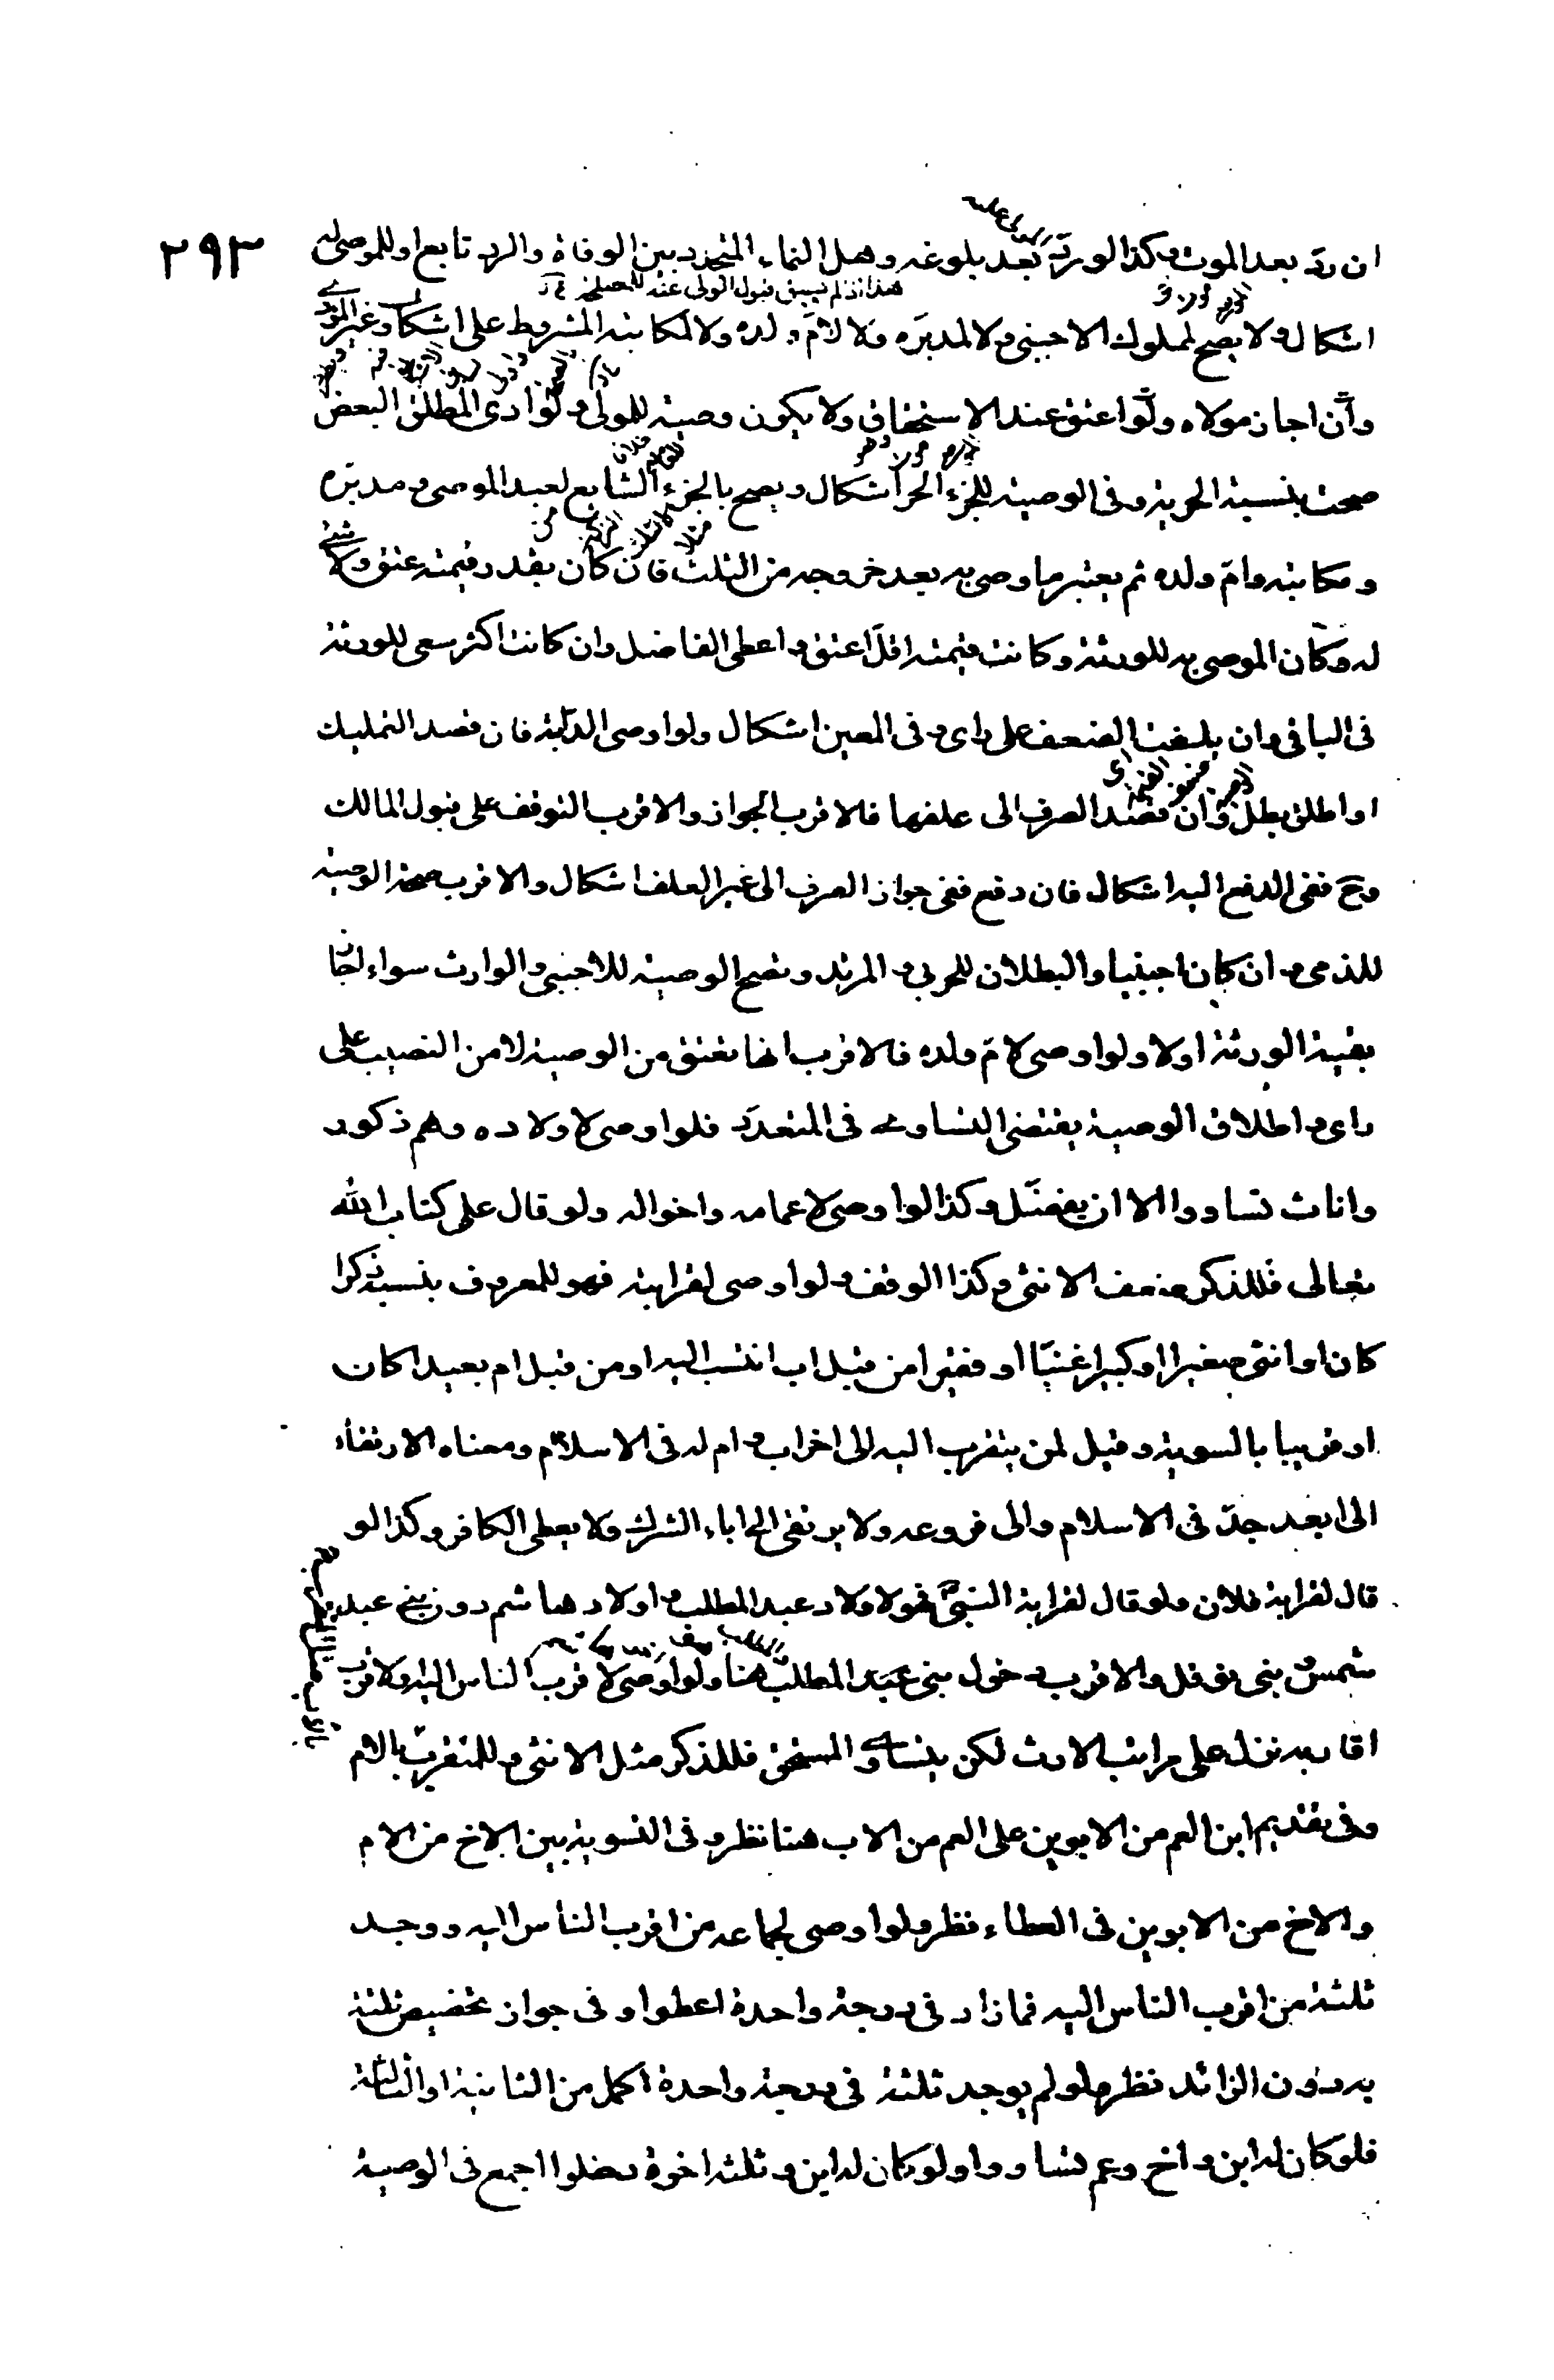 ٢٩٣
ان رد بعد الموت وكذا لو رد بعد بلوغه وهل النماء المتجدد بين الوفاة والرد تابع او للموصى له
هذا اذا لم يسبق قبول الولى عنه للمصلحة
اشكال ولا يصح لمملوك الاجنبى ولا لمدبره ولا لام ولده ولا لمكاتبه المشروط على اشكال وغير المؤدى
وان اجاز مولاه ولو اعتق عند الاستحقاق ولا يكون وصية للمولى ولو ادى المطلق البعض
صحت بنسبة الحرية وفى الوصية للجزء الحر اشكال ويصح بالجزء الشايع لعبد الموصى ومدبره
ومكاتبه وام ولده ثم يعتبر ما اوصى به بعد خروجه من الثلث فان كان بقدر قيمته عتق ولا شئ
له وكان الموصى به للورثة وكانت قيمته اقل اعتق واعطى الفاضل وان كانت اكثر سعى للورثة
فى الباقى وان بلغت الضعف على راى وفى المعين اشكال ولو اوصى الدابة فان قصد التمليك
او اطلق بطل وان قصد الصرف الى علفها فالاقرب الجواز والاقرب التوقف على قبول المالك
وح ففى الدفع اليه اشكال فان دفع ففى جواز الصرف الى غير العلف اشكال والاقرب صحة الوصية
للذمى وان كان اجنبيا والبطلان للحربى والمرتد وتصح الوصية للاجنبى والوارث سواء اجاز
بقية الورثة اولا ولو اوصى لام ولده فالاقرب انها تعتق من الوصية لا من النصيب على
راى واطلاق الوصية يقتضى التساوى فى المتعدد فلو اوصى لاولاده وهم ذكور
واناث تساووا الا ان يفضل وكذا لو اوصى لاعمامه واخواله ولو قال على كتاب الله
تعالى فللذكر ضعف الانثى وكذا الوقف ولو اوصى لقرابته فهو للمعروف بنسبه ذكرا
كان او انثى صغيرا او كبيرا غنيا او فقيرا من قبل اب انتسب اليه او من قبل ام بعيدا كان
او قريبا بالسوية وقيل لمن يتقرب اليه الى اخر اب وام له فى الاسلام ومعناه الارتقاء
الى ابعد جد فى الاسلام والى فروعه ولا يرتقى الى اباء الشرك ولا يعطى الكافر وكذا لو
قال لقرابة فلان ولو قال لقرابة النبى فهو لاولاد عبد المطلب واولاد هاشم دون بنى عبد
شمس وبنى نوفل والاقرب دخول بنى عبد المطلب هنا ولو اوصى لاقرب الناس اليه ولاقرب
اقاربه نزل على مراتب الارث لكن يتساوى المستحق فللذكر مثل الانثى وللمتقرب بالام
وفى تقديم ابن العم من الابوين على العم من الاب هنا نظر وفى التسوية بين الاخ من الام
والاخ من الابوين فى العطاء نظر ولو اوصى لجماعة من اقرب الناس اليه ووجد
ثلثة من اقرب الناس اليه فما زاد فى درجة واحدة اعطوا وفى جواز تخصيص ثلثة
به دون الزائد نظر ولو لم يوجد ثلثة فى درجة واحدة اكمل من الثانية او الثالثة
فلو كان له ابن واخ وعم تساووا ولو كان له ابن وثلثة اخوة دخلوا اجمع فى الوصية